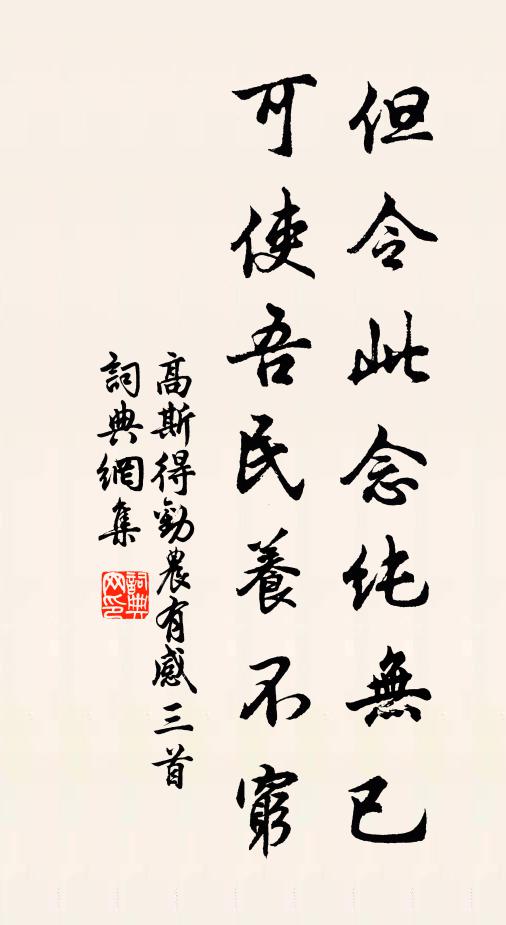 但令此念纯無已
可使吾民養不窮
高斯得勸農有感三首
詞典網集
詞典网印